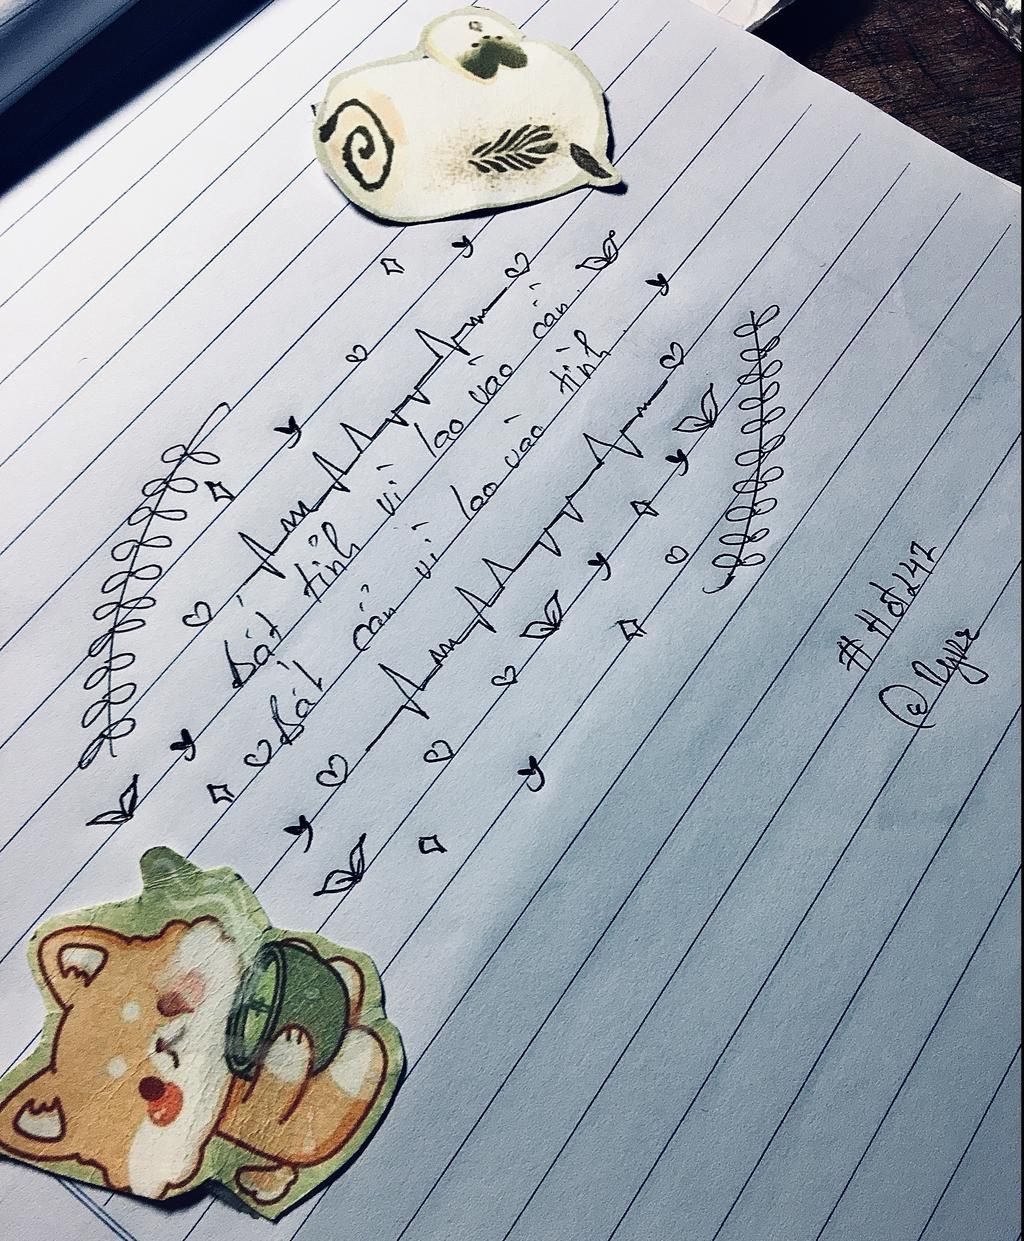 Bất tỉnh vì lao vào cần.
Bất cần vì lao vào tình.